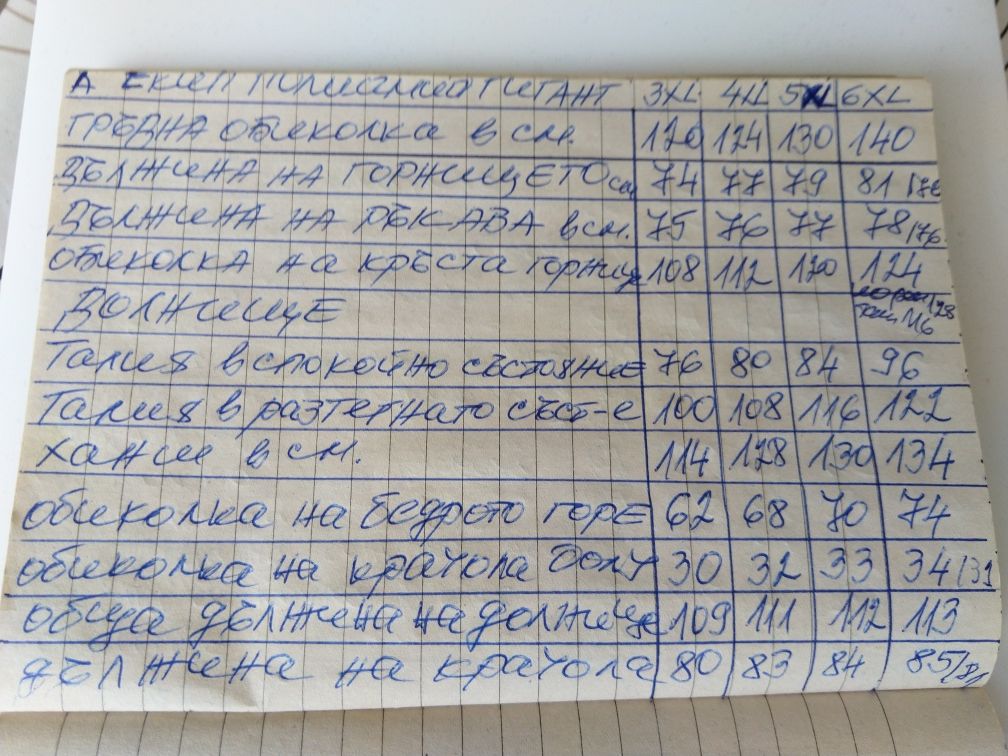 А ЕКИП ГИГАНТ 3XL 4XL 5XL 6XL
ГРЪДНА обиколка в см. 120 124 130 140
ДЪЛЖИНА НА ГОРНИЩЕТО см 74 77 79 81
ДЪЛЖИНА НА РЪКАВА в см. 75 76 77 78/76
обиколка на кръста горнище 108 112 120 124
ДОЛНИЩЕ
Талия в спокойно състояние 76 80 84 96
Талия в разтегнато съст-е 100 108 116 122
ханш в см. 114 128 130 134
обиколка на бедрото горе 62 68 70 74
обиколка на крачола долу 30 32 33 34/31
обща дължина на долнище 109 111 112 113
дължина на крачола 80 83 84 85/81